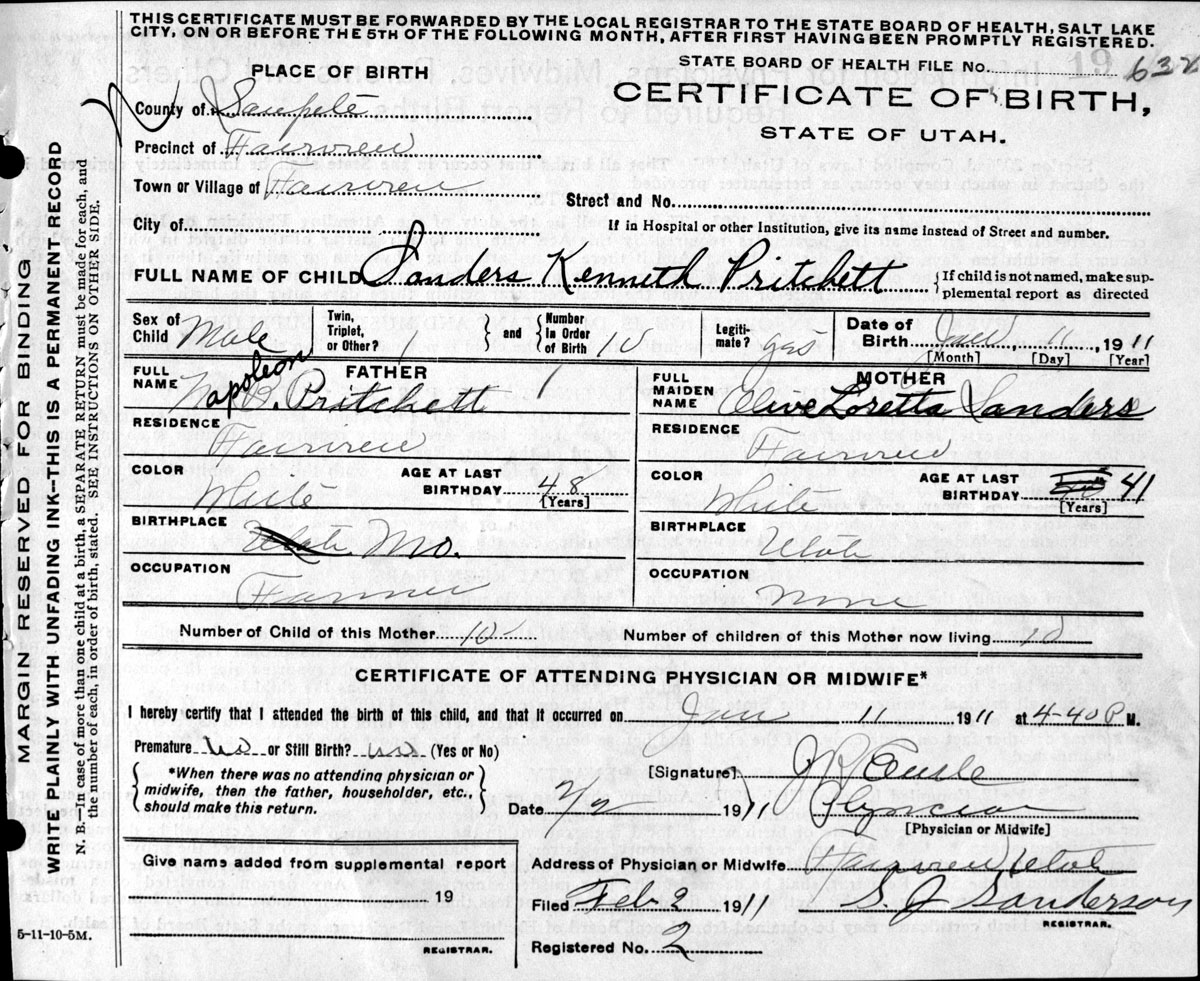 THIS CERTIFICATE MUST BE FORWARDED BY THE LOCAL REGISTRAR TO THE STATE BOARD OF HEALTH, SALT LAKE
CITY, ON OR BEFORE THE 5TH OF THE FOLLOWING MONTH, AFTER FIRST HAVING BEEN PROMPTLY REGISTERED.
PLACE OF BIRTH
STATE BOARD OF HEALTH FILE No. 19 632
CERTIFICATE OF BIRTH,
STATE OF UTAH.
County of Sanpete
Precinct of Fairview
Town or Village of Fairview
Street and No.
City of
If in Hospital or other Institution, give its name instead of Street and number.
FULL NAME OF CHILD Sanders Kenneth Pritchett {If child is not named, make sup-
plemental report as directed
Sex of Child Male
Twin, Triplet, or Other? 1 } and { Number in Order of Birth 10
Legiti- mate? yes
Date of Birth Jan 11, 1911
[Month] [Day] [Year]
FATHER
FULL NAME Napoleon B. Pritchett
RESIDENCE
Fairview
COLOR White
AGE AT LAST BIRTHDAY 48
[Years]
BIRTHPLACE
Utah Mo.
OCCUPATION
Farmer
MOTHER
FULL MAIDEN NAME Olive Loretta Sanders
RESIDENCE
Fairview
COLOR White
AGE AT LAST BIRTHDAY 41
[Years]
BIRTHPLACE
Utah
OCCUPATION
None
Number of Child of this Mother 10
Number of children of this Mother now living 10
CERTIFICATE OF ATTENDING PHYSICIAN OR MIDWIFE*
I hereby certify that I attended the birth of this child, and that it occurred on Jan 11 1911 at 4-40 P M.
Premature no or Still Birth? no (Yes or No)
{*When there was no attending physician or
midwife, then the father, householder, etc.,
should make this return.}
[Signature]
Date 2/2 1911 Physician
[Physician or Midwife]
Give name added from supplemental report
19
REGISTRAR.
Address of Physician or Midwife Fairview Utah
Filed Feb 2 1911 S. J. Sanderson
REGISTRAR.
Registered No. 2
5-11-10-5M.
MARGIN RESERVED FOR BINDING
WRITE PLAINLY WITH UNFADING INK—THIS IS A PERMANENT RECORD
N. B.—In case of more than one child at a birth, a SEPARATE RETURN must be made for each, and
the number of each, in order of birth, stated. SEE INSTRUCTIONS ON OTHER SIDE.